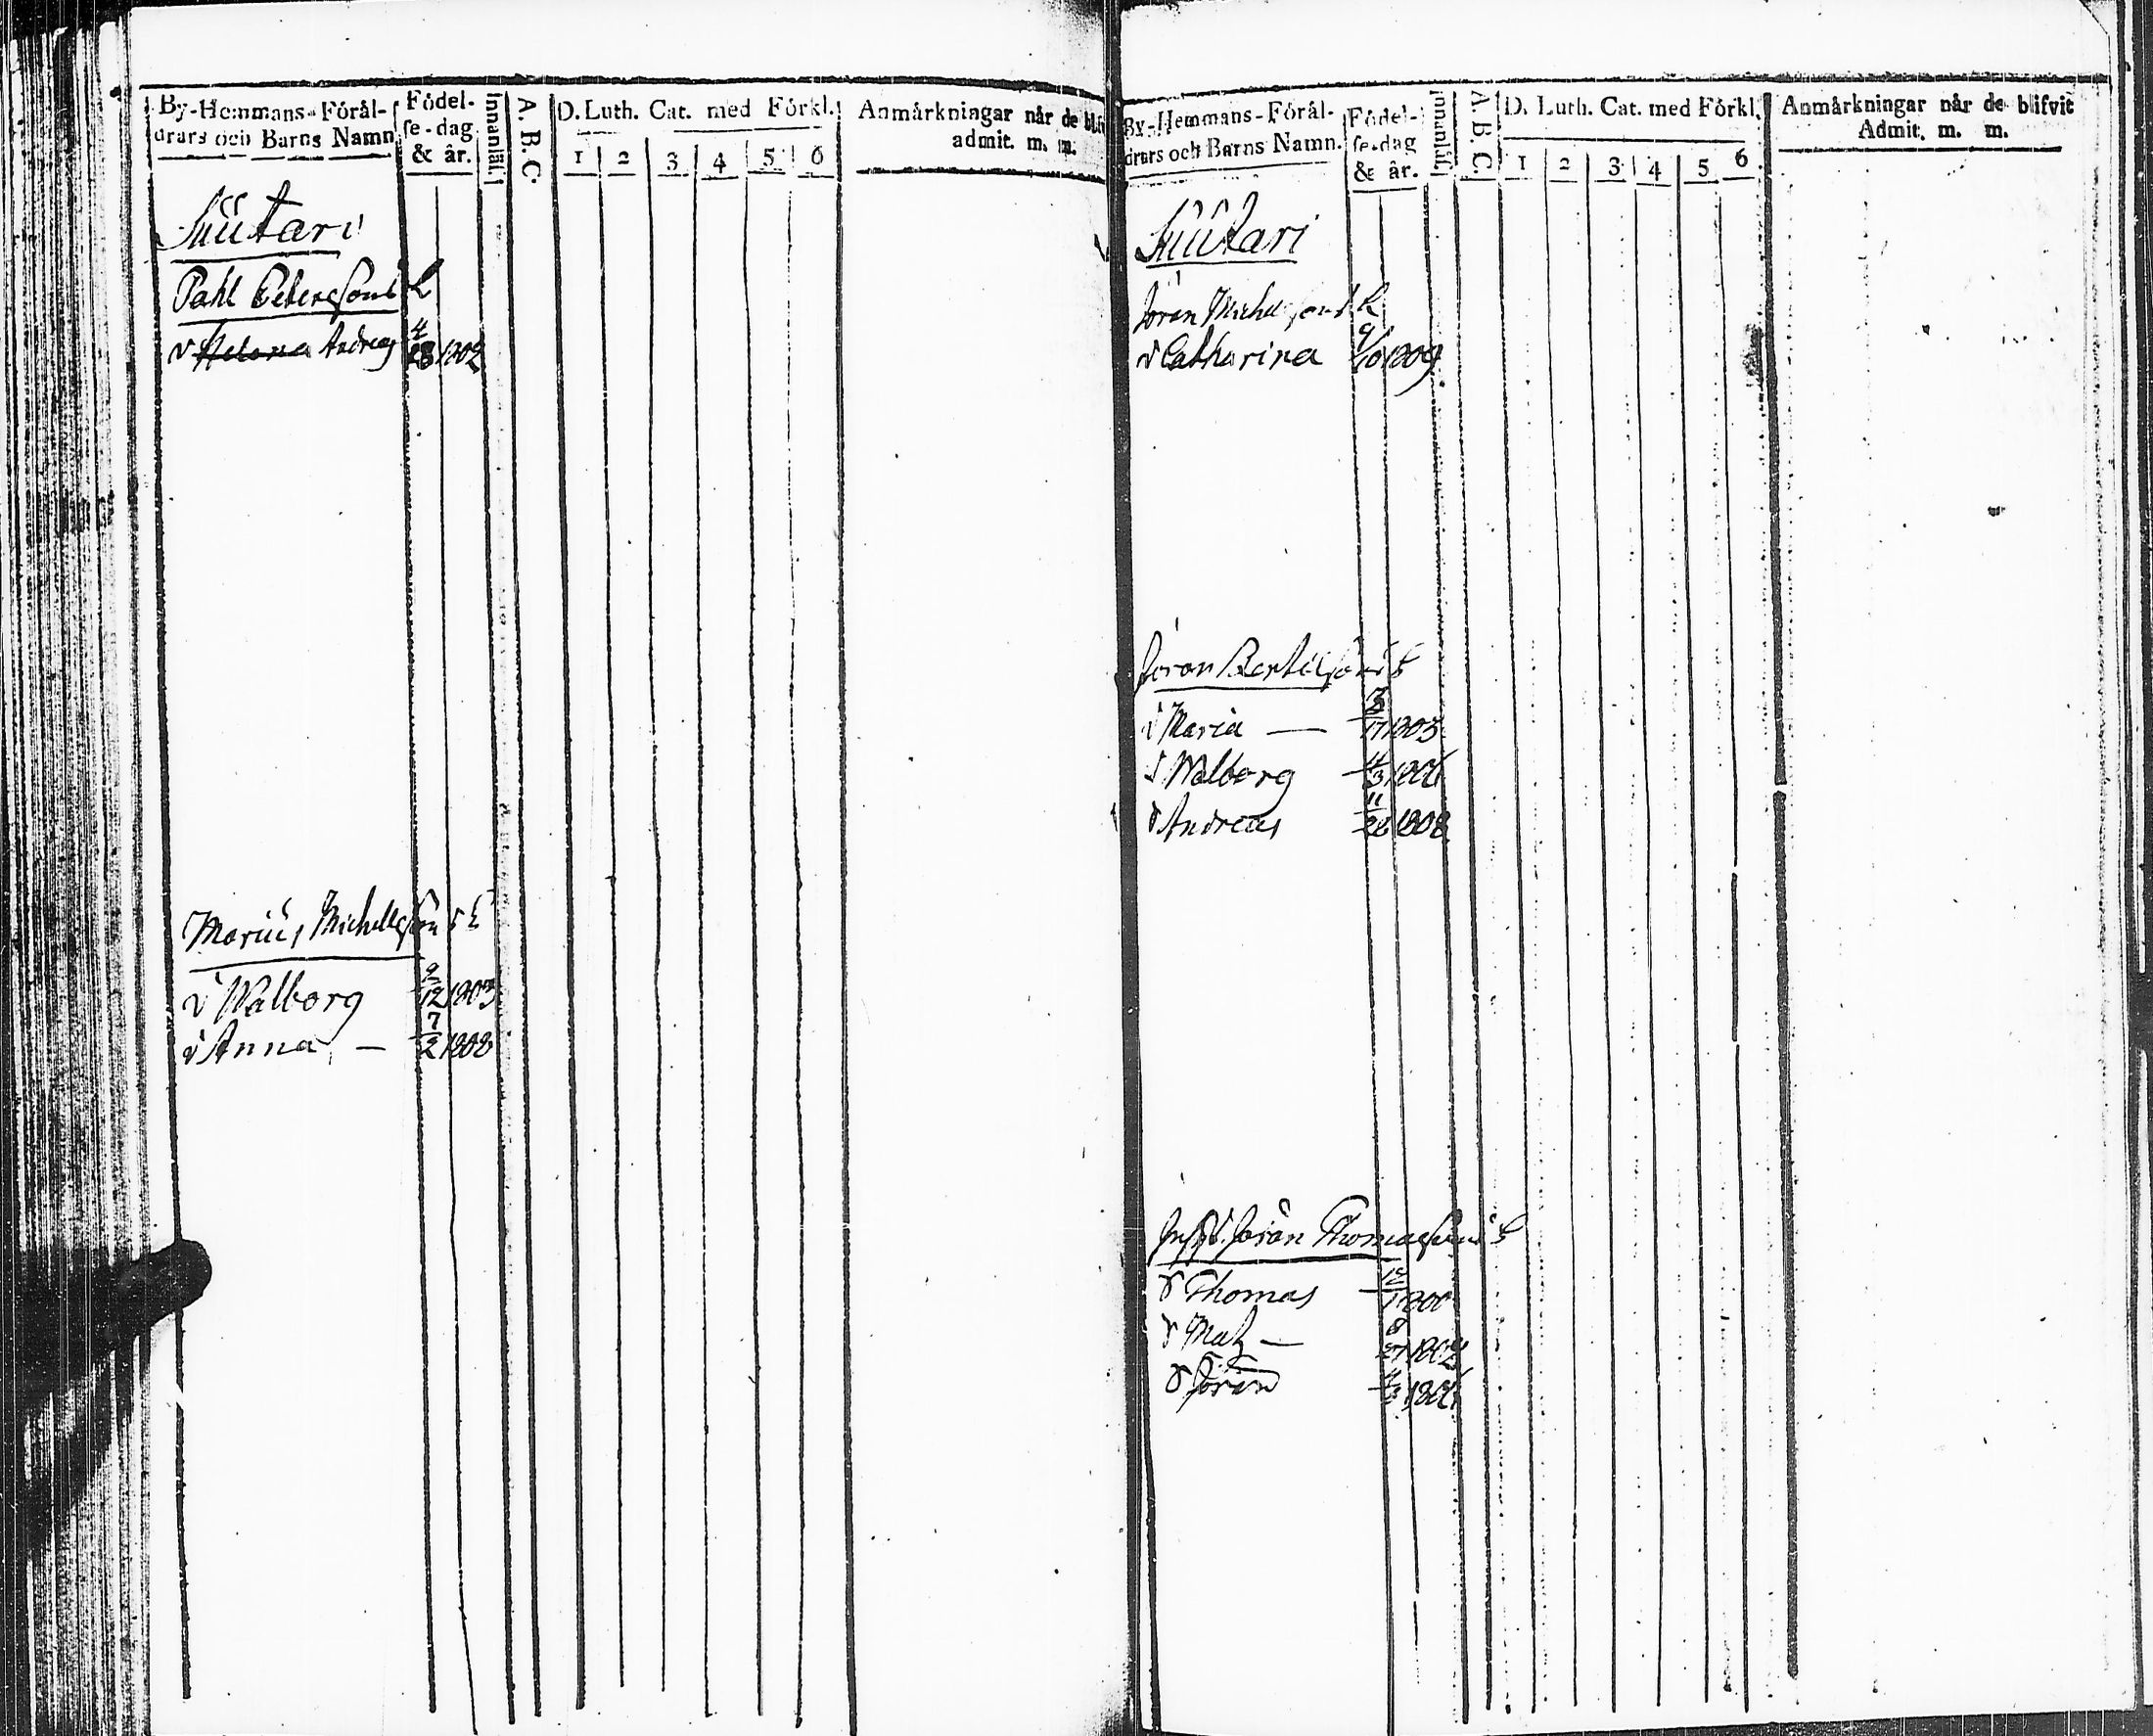 By-Hemmans-Förål-
drars och Barns Namn
Födel-
se-dag
& år.
Innanläs.
A. B. C.
D. Luth. Cat. med Förkl.
1 2 3 4 5 6
Anmärkningar når de blifv
admit. m. m.
Suutari
Pahl Peterssons
Helena Andreas 4/28 1802
Michelsson
Walborg 9/12 1803
Anna — 7/2 1808
By-Hemmans-Förål-
drars och Barns Namn.
Födel-
se-dag
& år.
Innanläs.
A. B. C.
D. Luth. Cat. med Förkl.
1 2 3 4 5 6
Anmärkningar når de blifvit
Admit. m. m.
Suutari
Jöran Michelssons
Catharina 9/10 1809
Jöran Bertilssons
Maria — 17 1803
Walborg 4/3 1806
Andreas 11/26 1808
Jöran Thomassons
Thomas 12/1 1800
Matz — 1802
Jöran 1806